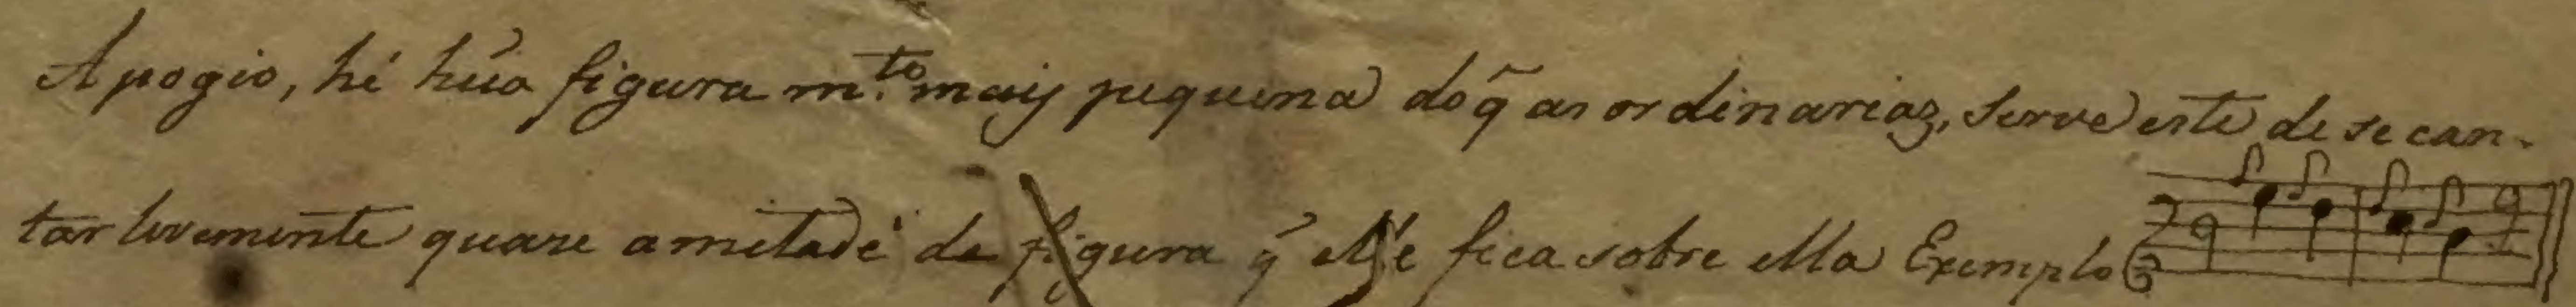 Apogio, hé hũa figura m.to mais pequena do q̃ as ordinarias, serve este de se can-
tar levemente quase ametade da figura q̃ elle fica sobre ella Exemplo